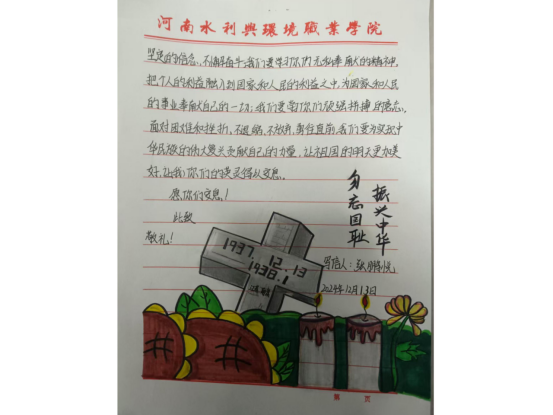 河南水利與環境職業學院
坚定的信念、不惧牺牲,我们要学习你们无私奉献的精神,
把个人的利益融入到国家和人民的利益之中,为国家和人民
的事业奉献自己的一切;我们要学习你们顽强拼搏的意志,
面对困难和挫折,不退缩,不放弃,勇往直前,我们要为实现中
华民族的伟大复兴贡献自己的力量,让祖国的明天更加美
好,让我们的英灵得以安息。
愿你们安息!
此致
敬礼!
振兴中华
勿忘国耻
1937.12.13
1938.1
写信人:张
2024年12月13日
第 页